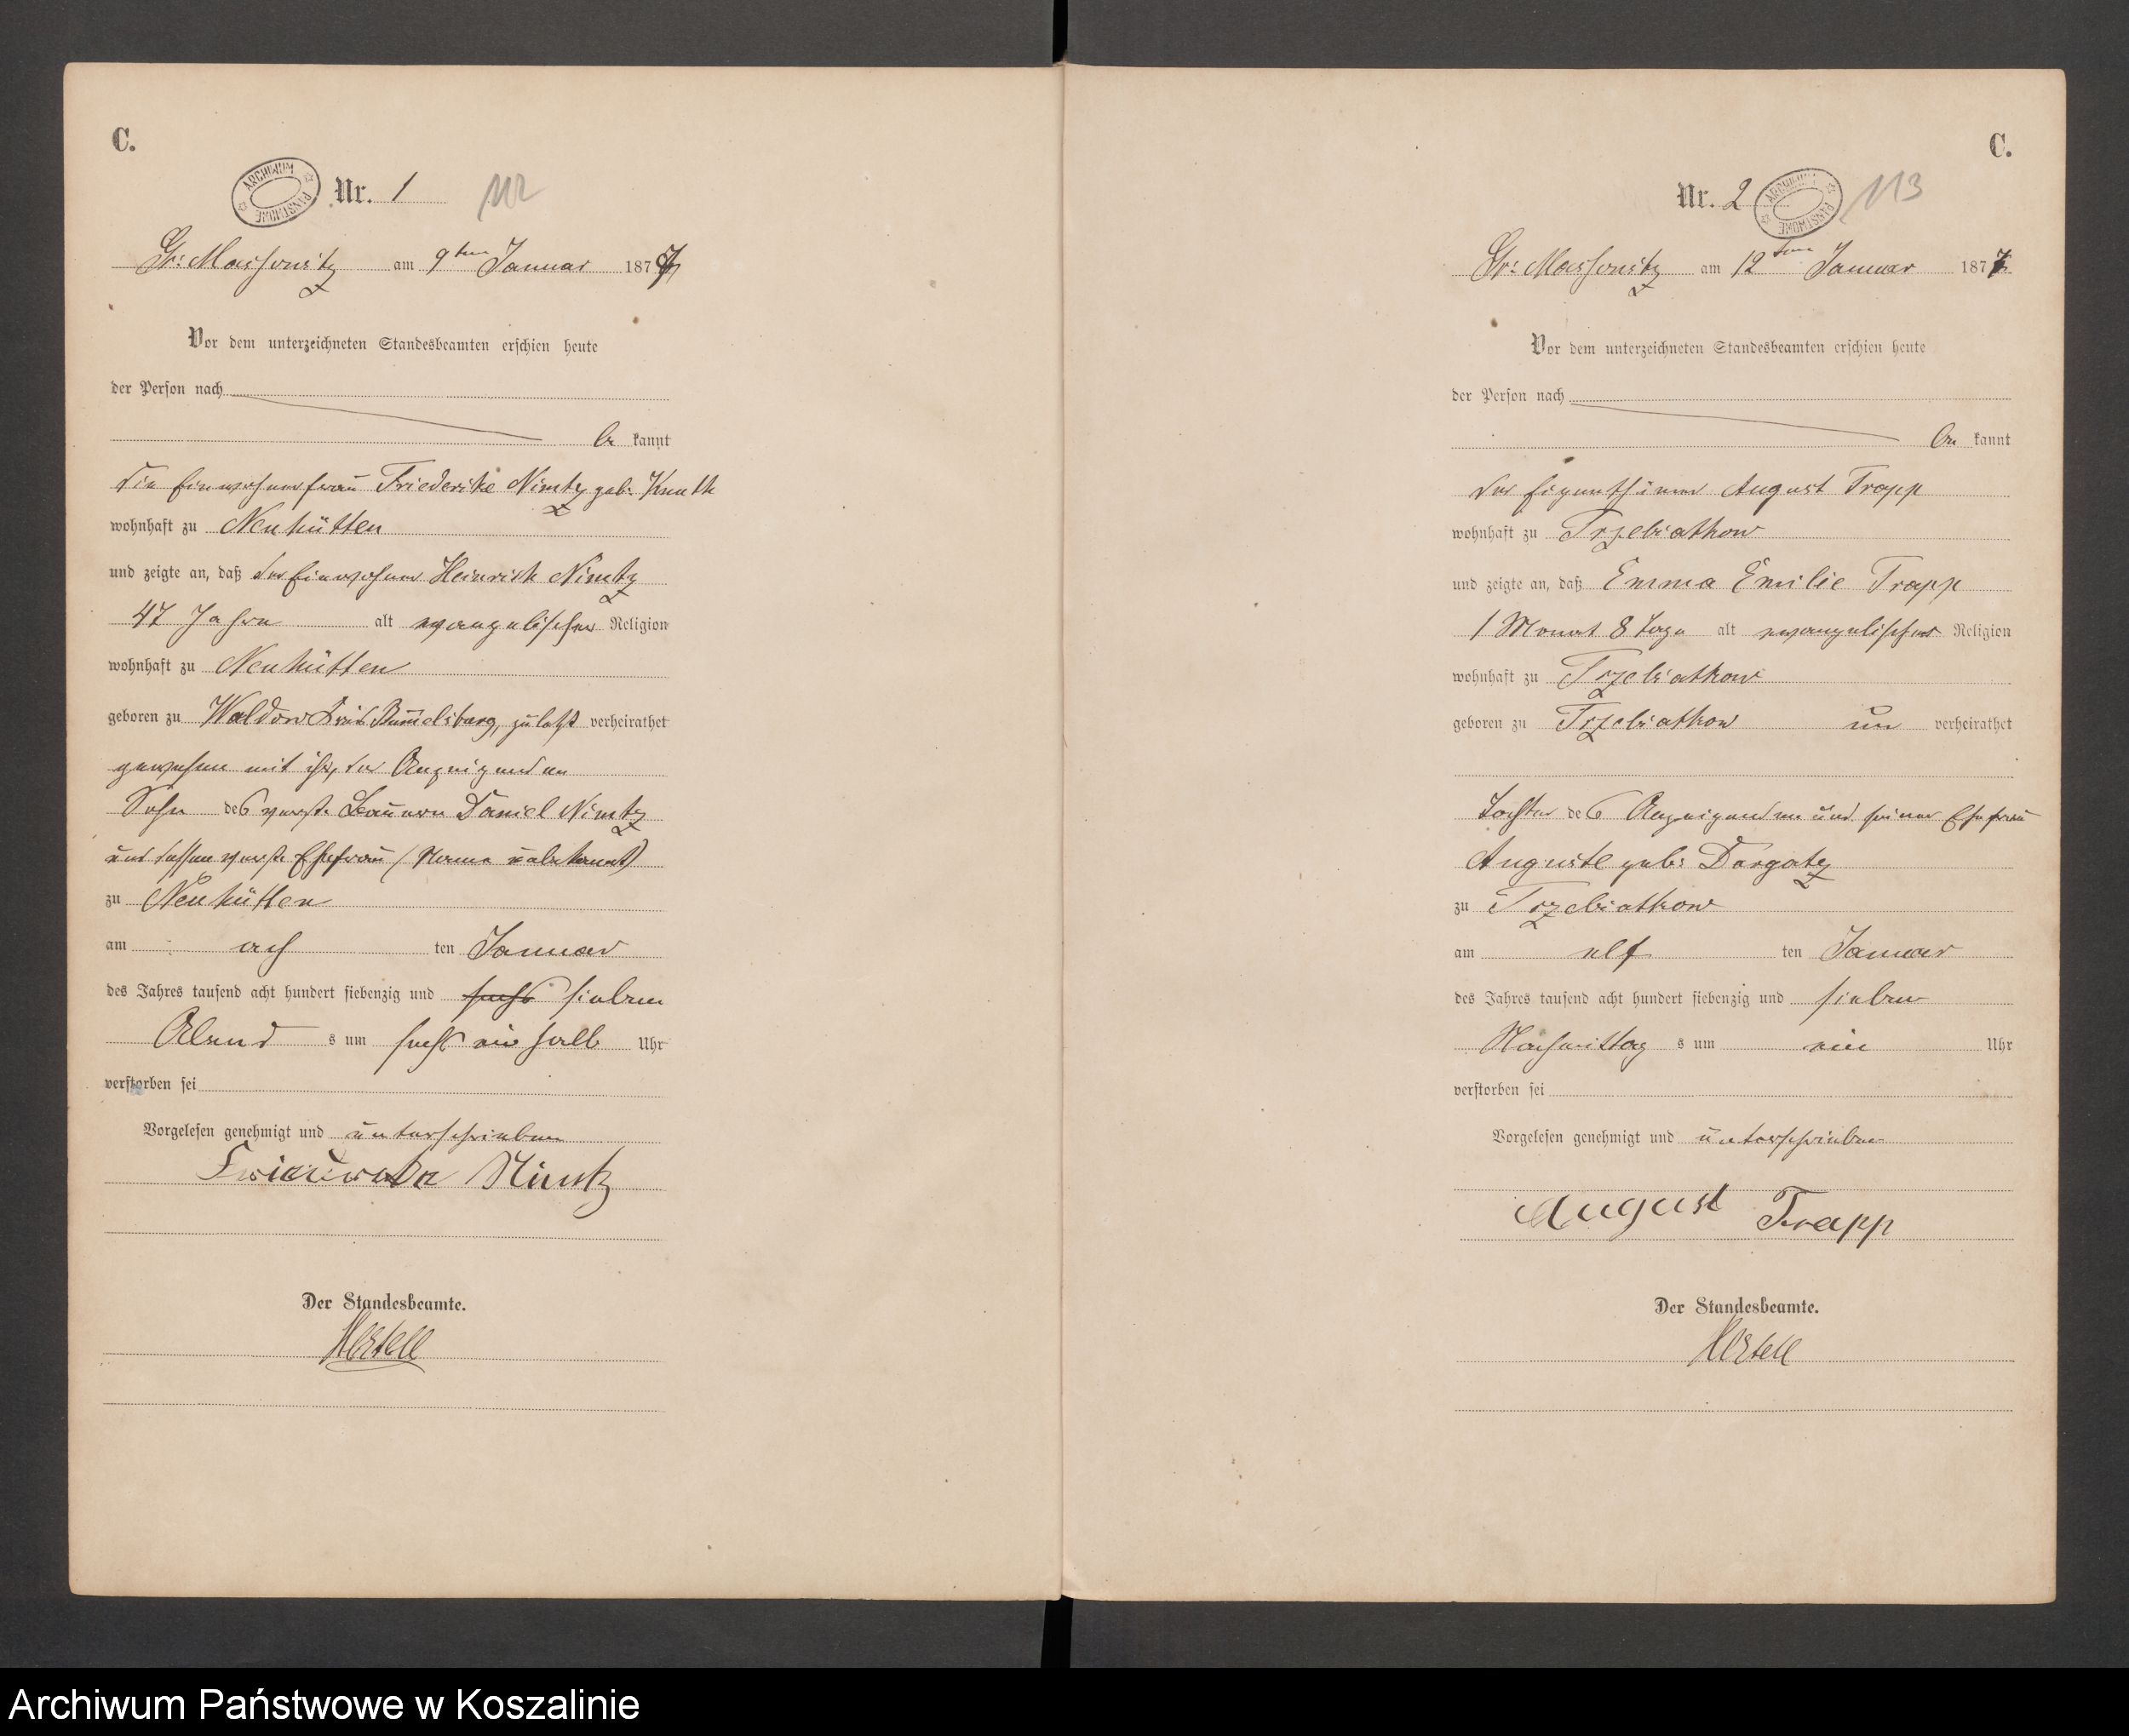 C.
ARCHIWUM PAŃSTWOWE
Nr. 1
112
Gr: Massowitz am 9ten Januar 1877
Vor dem unterzeichneten Standesbeamten erschien heute
der Person nach
be kannt
die Einwohnerfrau Friederike Nimtz geb: Knuth
wohnhaft zu Neuhütten
und zeigte an, daß der Einwohner Heinrich Nimtz
47 Jahre alt evangelischer Religion
wohnhaft zu Neuhütten
geboren zu Waldow Kreis Rummelsburg, zuletzt verheirathet
gewesen mit ihr, der Anzeigenden
Sohn des verst. Bauern Daniel Nimtz
und dessen verst. Ehefrau (Name unbekannt)
zu Neuhütten
am ach ten Januar
des Jahres tausend acht hundert siebenzig und sechs sieben
Abend s um sechs ein halb Uhr
verstorben sei
Vorgelesen genehmigt und unterschrieben
Nimtz
Der Standesbeamte.
C.
Nr. 2
ARCHIWUM PAŃSTWOWE
113
Gr: Massowitz am 12ten Januar 1877
Vor dem unterzeichneten Standesbeamten erschien heute
der Person nach
be kannt
der Eigenthümer August Trapp
wohnhaft zu Trzebiatkow
und zeigte an, daß Emma Emilie Trapp
1 Monat 8 Tage alt evangelischer Religion
wohnhaft zu Trzebiatkow
geboren zu Trzebiatkow un verheirathet
Tochter des Anzeigenden und seiner Ehefrau
Auguste geb: Dargatz
zu Trzebiatkow
am elf ten Januar
des Jahres tausend acht hundert siebenzig und sieben
Nachmittag s um ein Uhr
verstorben sei
Vorgelesen genehmigt und unterschrieben
August Trapp
Der Standesbeamte.
Archiwum Państwowe w Koszalinie